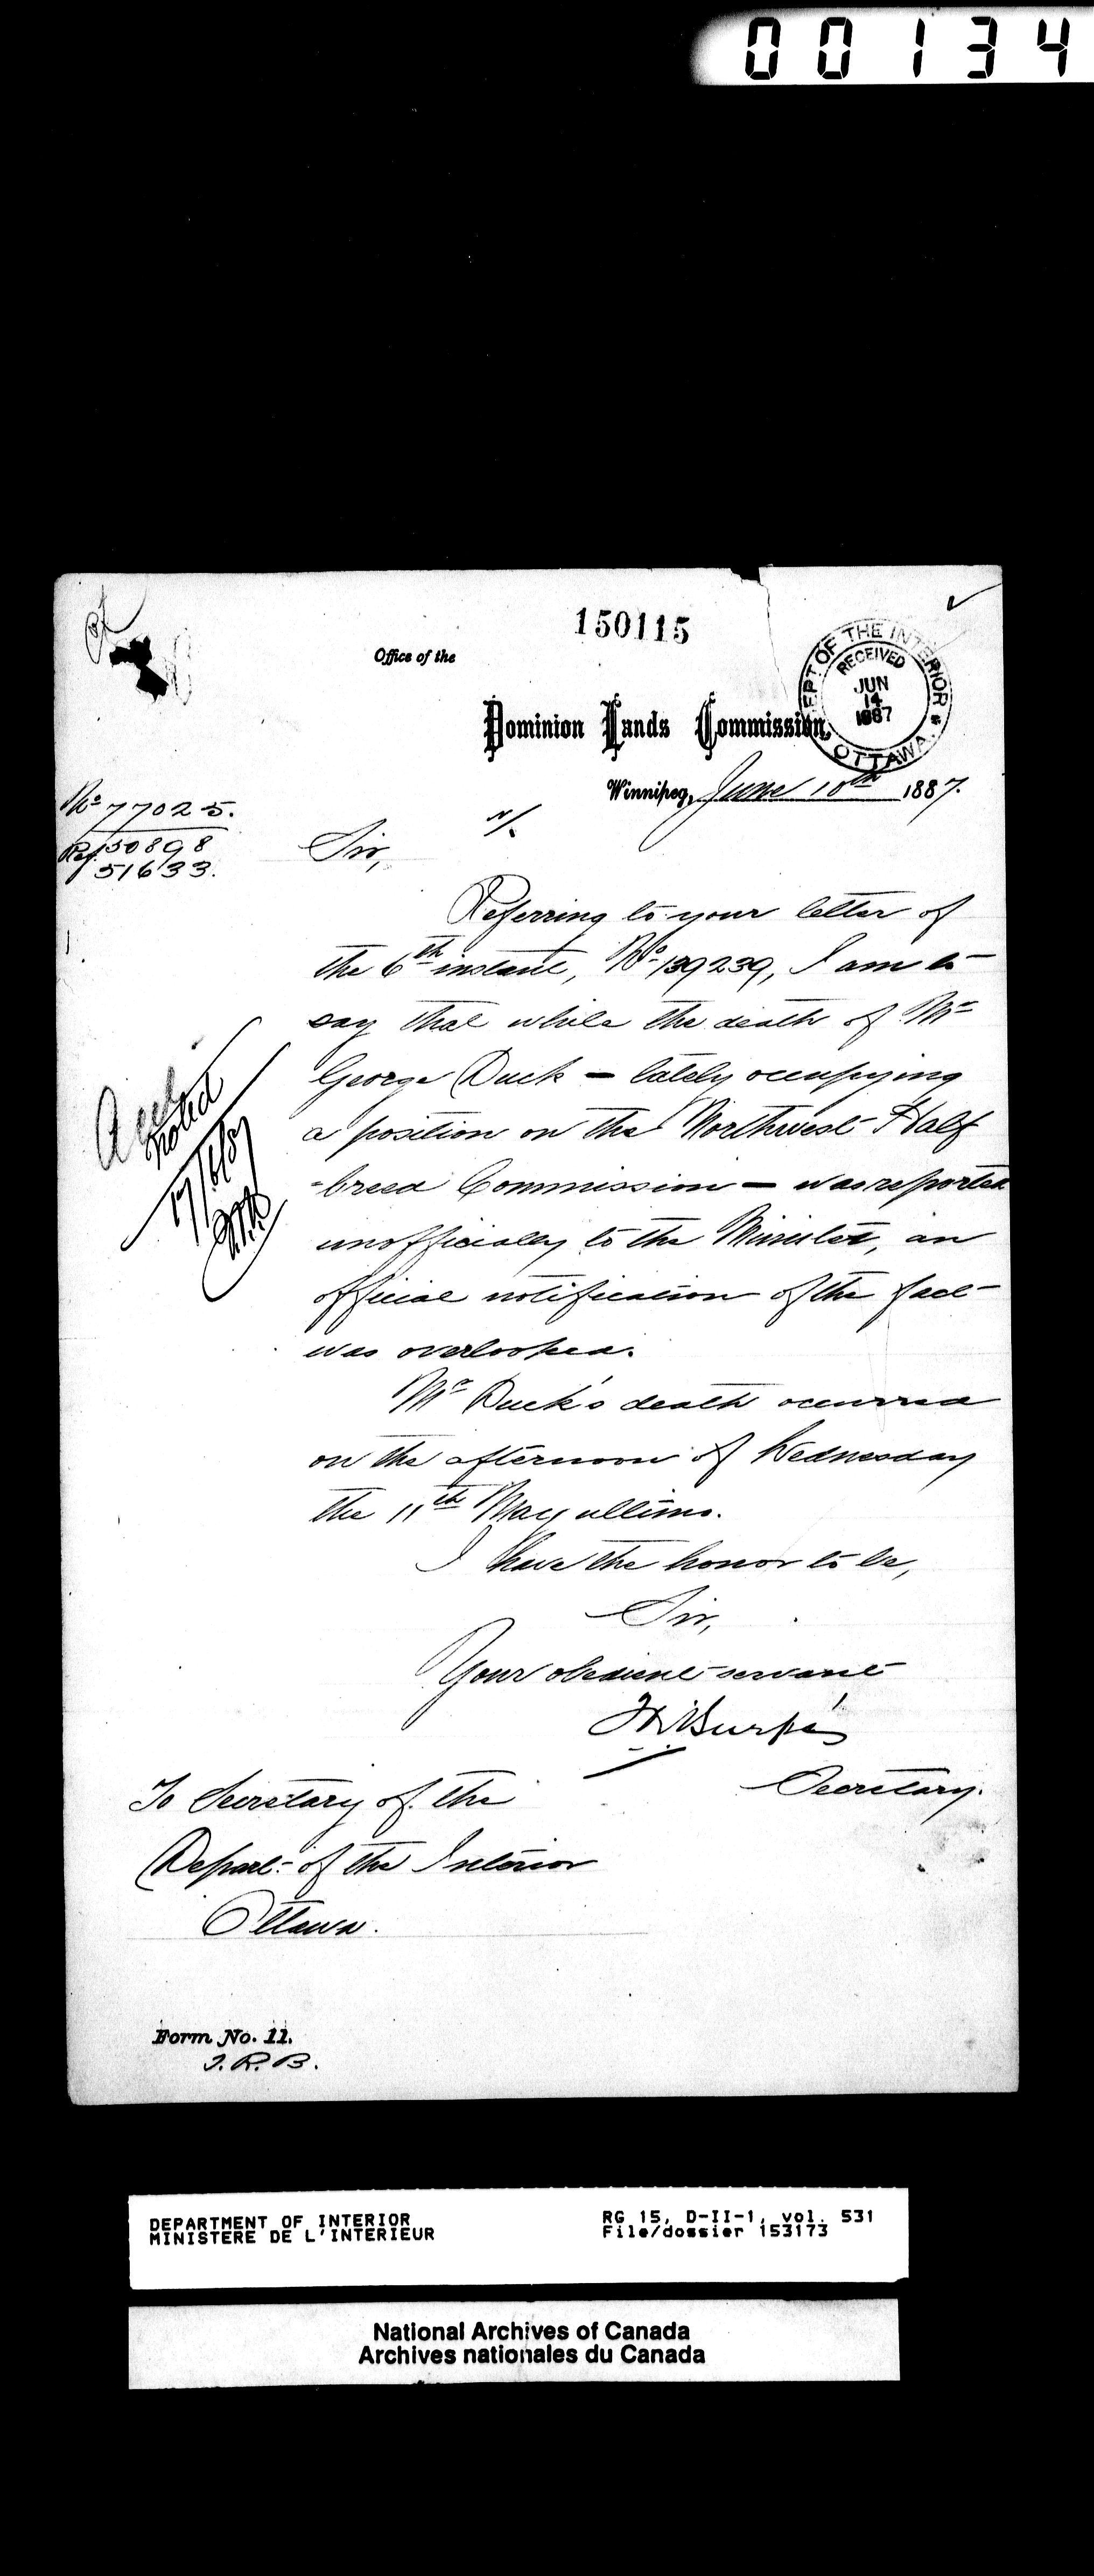 00134
150115
Office of the
Dominion Lands Commission,
DEPT OF THE INTERIOR
RECEIVED
JUN
14
1887
OTTAWA.
Winnipeg, June 10th 1887.
No 77025.
Ref 150898
51633.
Sir,
Referring to your letter of
the 6th instant, No 139239, I am to
say that while the death of Mr
George Duck — lately occupying
a position on the Northwest Half
-breed Commission — was reported
unofficially to the Minister, an
official notification of the fact
was overlooked.
Mr Duck's death occurred
on the afternoon of Wednesday
the 11th May ultimo.
I have the honor to be,
Sir,
Your obedient servant
Burpé
Secretary.
noted
17/6/87
To Secretary of the
Depart: of the Interior
Ottawa.
Form No. 11.
J.R.B.
DEPARTMENT OF INTERIOR
MINISTERE DE L'INTERIEUR
RG 15, D-II-1, vol. 531
File/dossier 153173
National Archives of Canada
Archives nationales du Canada